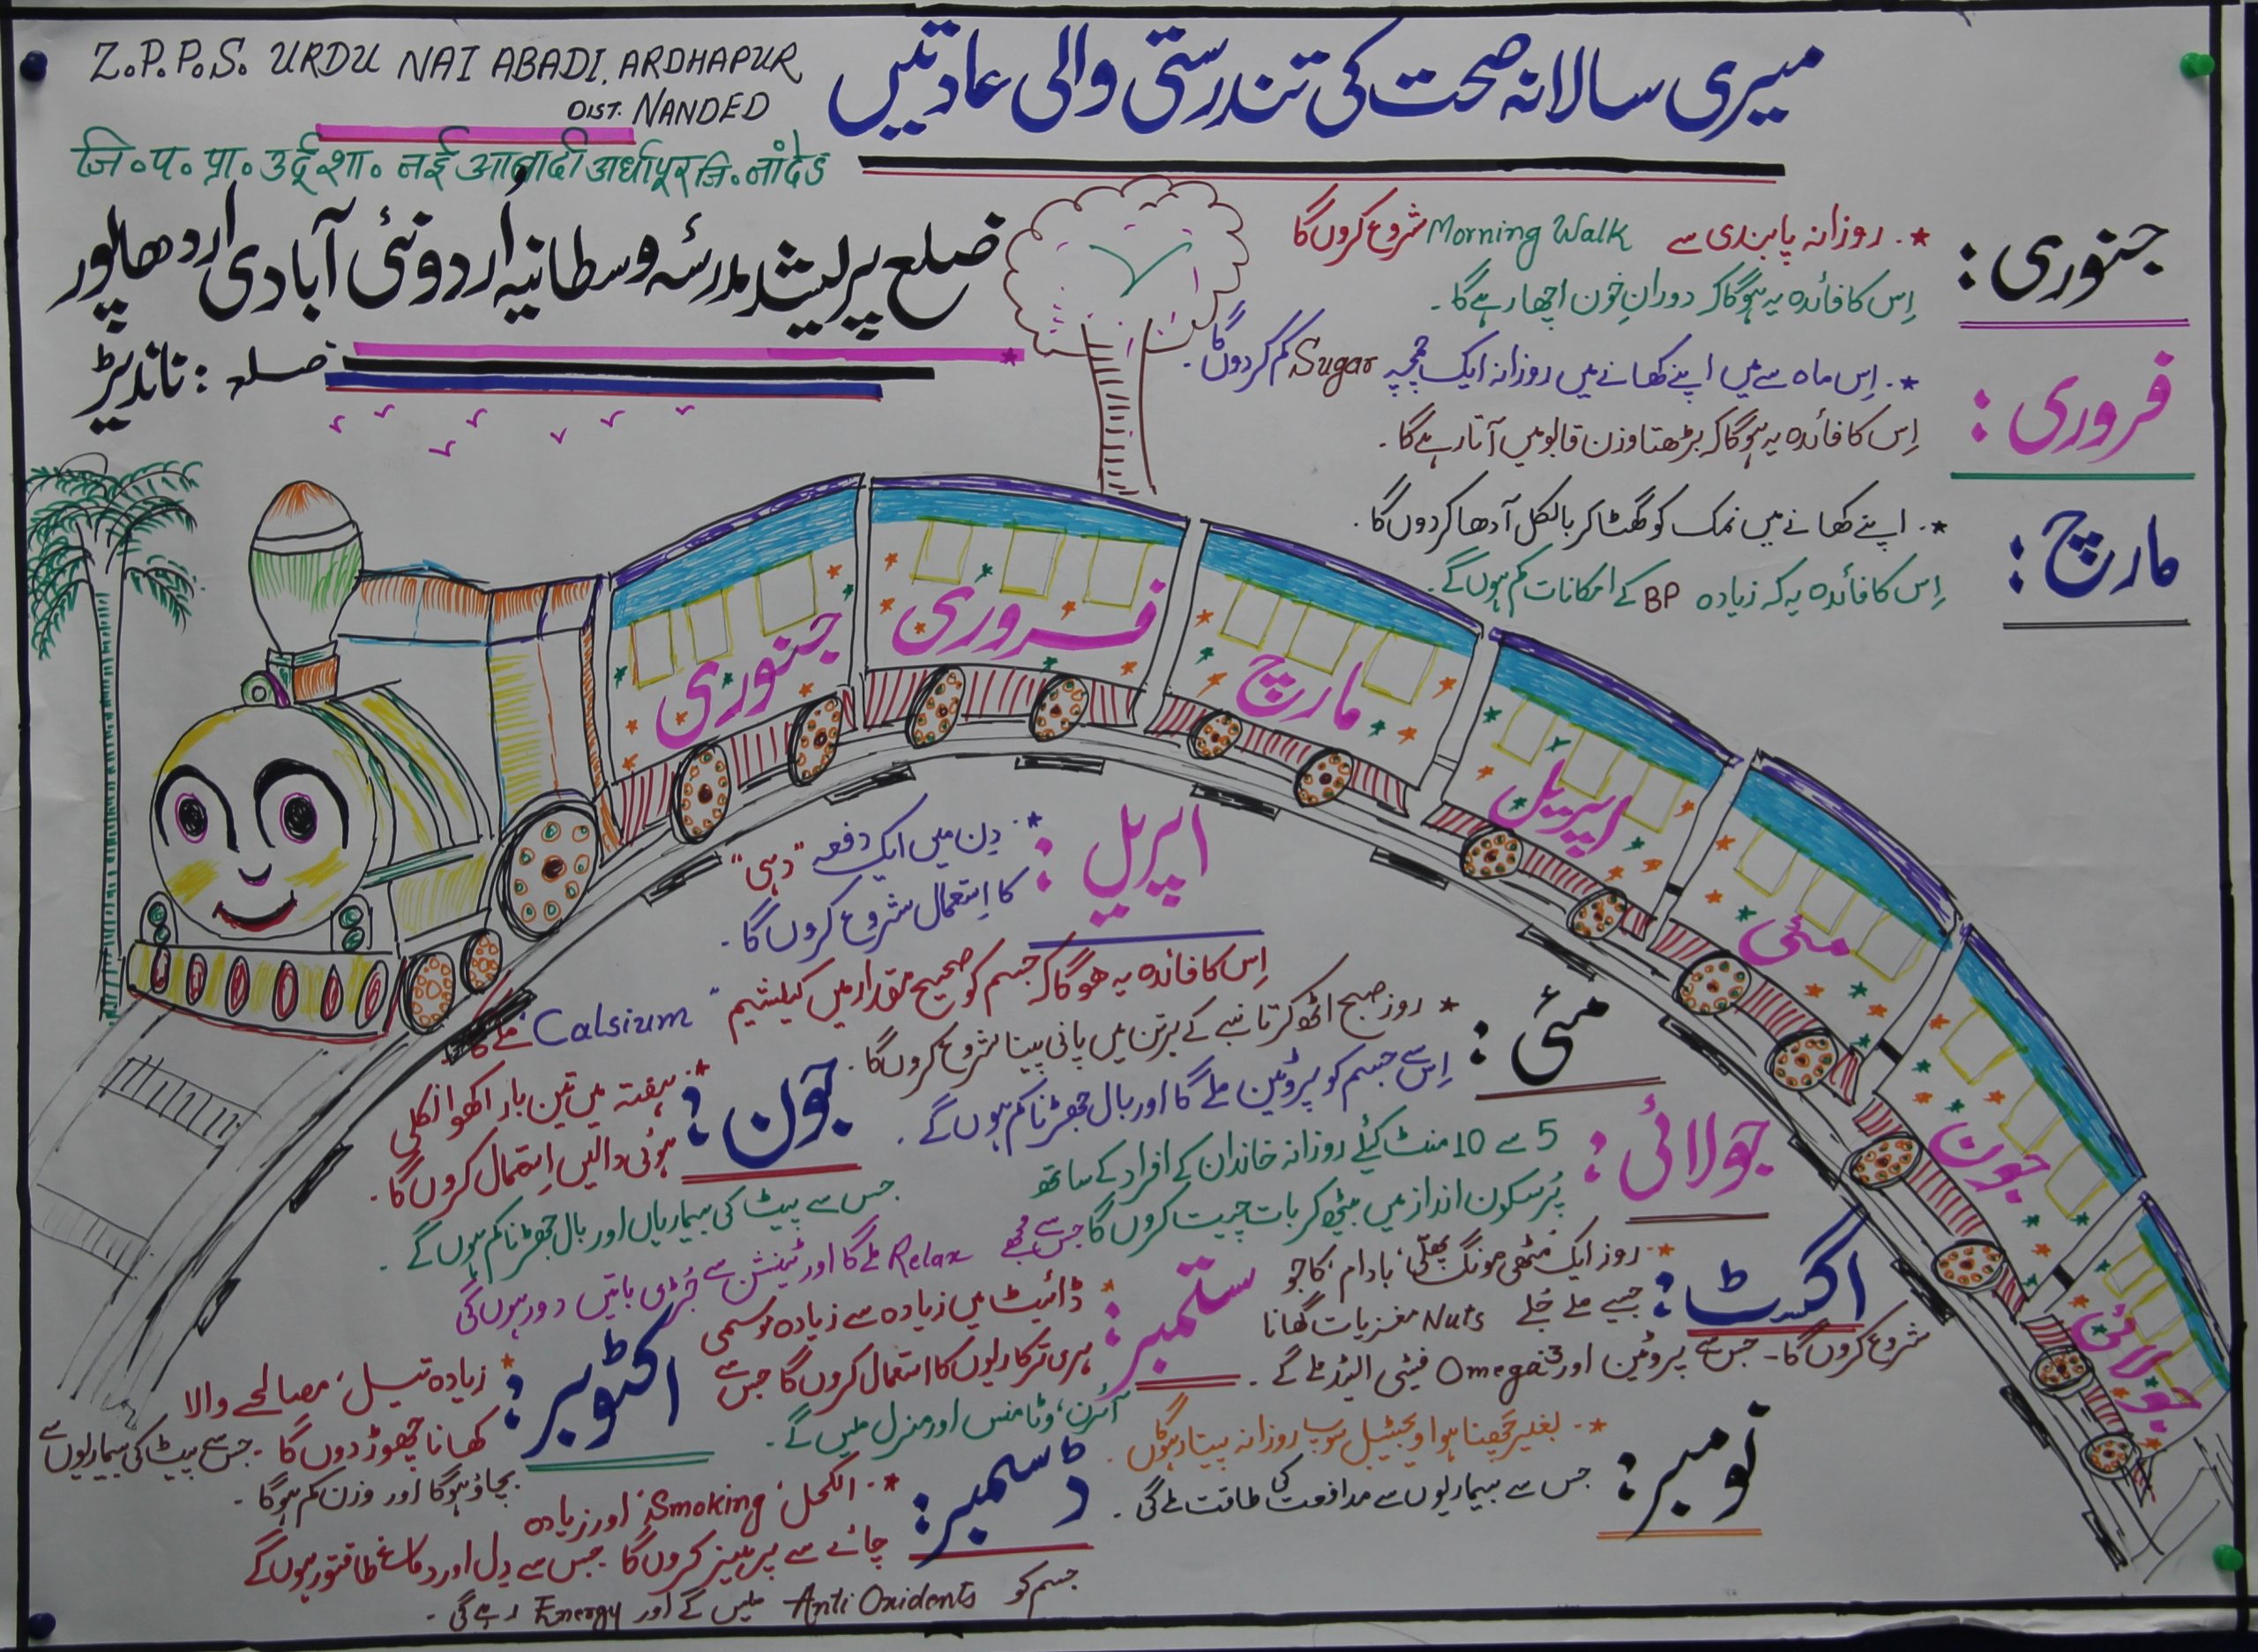 Z.P.P.S. URDU NAI ABADI, ARDHAPUR
DIST. NANDED
जि.प.प्रा.उर्दू शा. नई आबादी अर्धापूर जि.नांदेड
میری سالانہ صحت کی تندرستی والی عادتیں
ضلع پریشد مدرسہ وسطانیہ اُردو نئی آبادی اردھاپور
ضلع : ناندیڑ
جنوری :
*. روزانہ پابندی سے Morning Walk شروع کروں گا
اِس کا فائدہ یہ ہوگا کہ دورانِ خون اچھا رہے گا۔
فروری :
*. اِس ماہ سے میں اپنے کھانے میں روزانہ ایک چمچہ Sugar کم کردوں گا۔
اِس کا فائدہ یہ ہوگا کہ بڑھتا وزن قابو میں آتا رہے گا۔
مارچ :
*. اپنے کھانے میں نمک کو گھٹا کر بالکل آدھا کردوں گا۔
اِس کا فائدہ یہ کہ زیادہ BP کے امکانات کم ہوں گے۔
جنوری
فروری
مارچ
اپریل
مئی
جون
جولائی
اپریل :
*. دِن میں ایک دفعہ "دہی"
کا اِستعمال شروع کروں گا۔
اِس کا فائدہ یہ ھوگا کہ جسم کو صحیح مقدار میں کیلشیم "Calsium" ملے گا
مئی :
* روز صبح اٹھ کر تانبے کے برتن میں پانی پینا شروع کروں گا۔
اِس سے جسم کو پروٹین ملے گا اور بال جھڑنا کم ہوں گے۔
جون :
*. ہفتہ میں تین بار اکھوا نکلی
ہوئی دالیں اِستمال کروں گا۔
جس سے پیٹ کی بیماریاں اور بال جھڑنا کم ہوں گے۔
جولائی :
5 سے 10 منٹ کیلئے روزانہ خاندان کے افراد کے ساتھ
پُرسکون انداز میں بیٹھ کر بات چیت کروں گا جس سے مجھے Relax ملے گا اور ٹینشن سے جُڑی باتیں دور ہوں گی
اگست :
*. روز ایک مُٹھی مونگ پھلّی، بادام، کاجو
جیسے ملے جُلے Nuts مغزیات کھانا
شروع کروں گا۔ جس سے پروٹین اور Omega3 فیٹی ایسڈ ملے گے۔
ستمبر :
* ڈائیٹ میں زیادہ سے زیادہ موسمی
ہری ترکاریوں کا استعمال کروں گا جس سے
آئرن، وٹامنس اور منرل ملیں گے۔
اکٹوبر :
* زیادہ تیل، مصالحے والا
کھانا چھوڑ دوں گا۔ جس سے پیٹ کی بیماریوں سے
بچاؤ ہوگا اور وزن کم ہوگا۔
نومبر :
*. بغیر چھنا ہوا ویجیٹیبل سوپ روزانہ پیتا رہوں گا۔
جس سے بیماریوں سے مدافعت کی طاقت ملے گی۔
ڈسمبر :
*. الکحل، 'Smoking' اور زیادہ
چائے سے پرہیز کروں گا جس سے دِل اور دماغ طاقتور ہوں گے
جسم کو Anti Oxidents ملیں گے اور Energy رہے گی۔